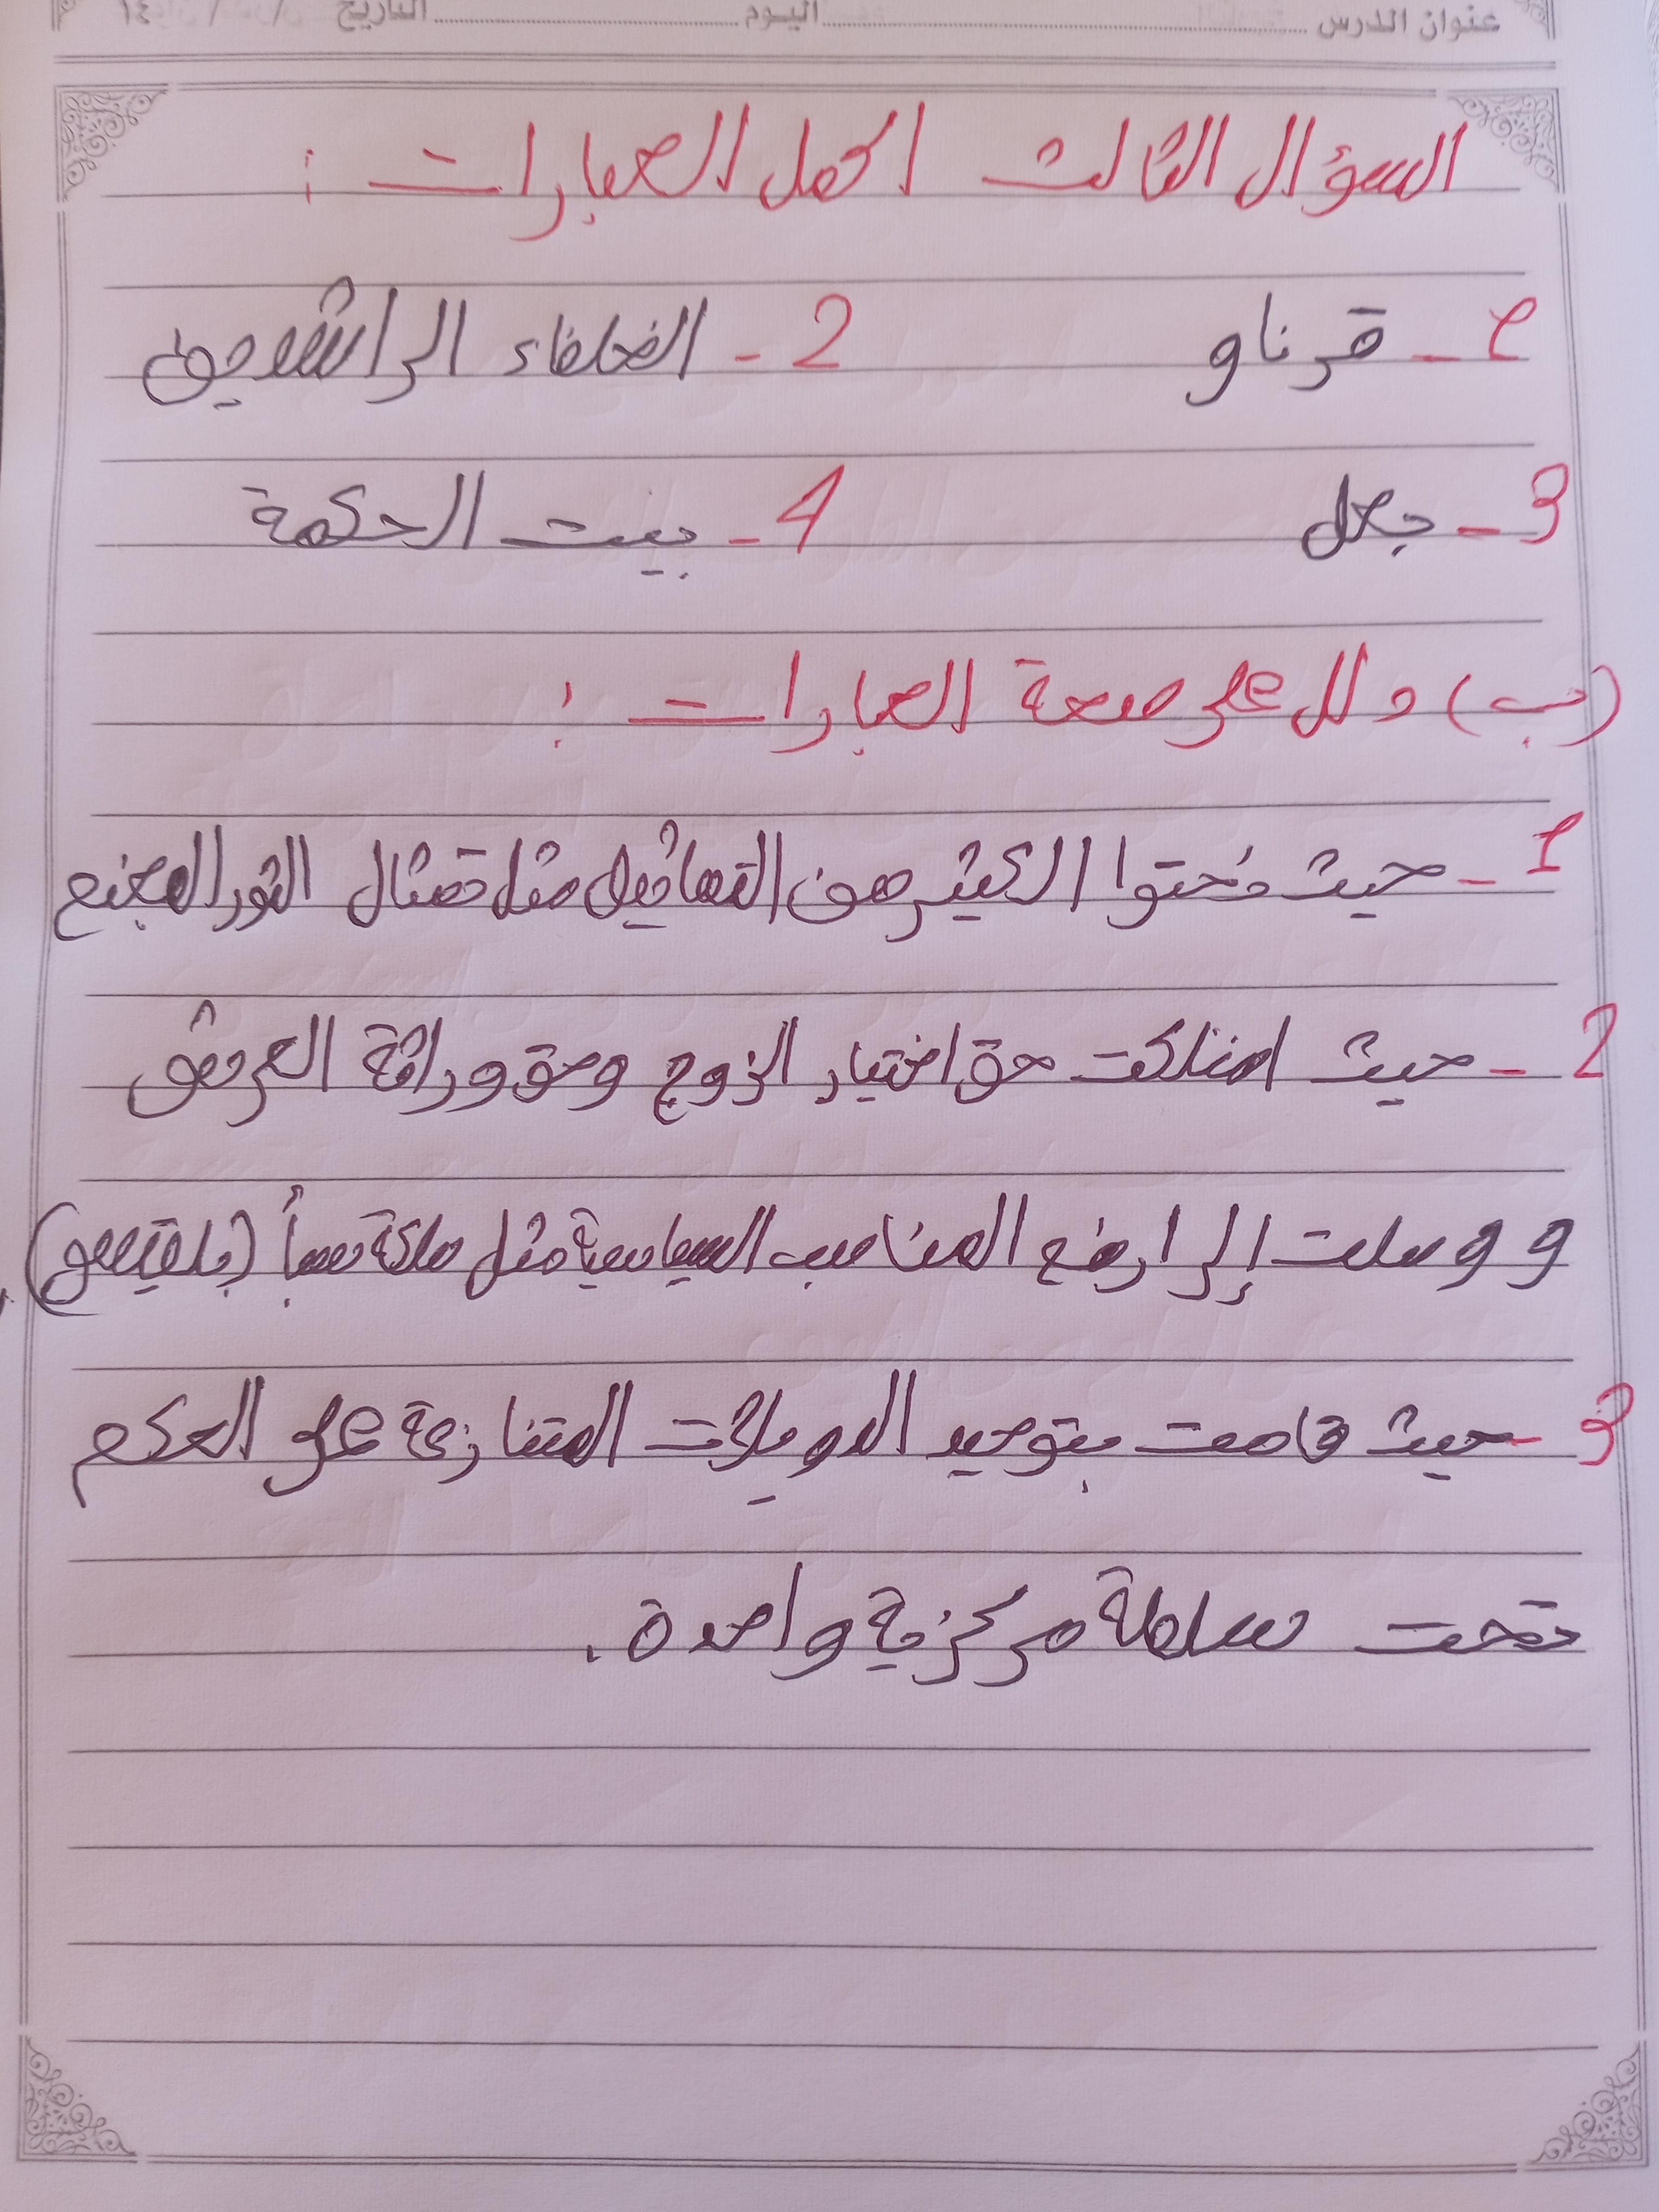 عنوان الدرس ........ اليوم ........ التاريخ / / ١٤
السؤال الثالث اكمل العبارات :
1- قرناو 2- الخلفاء الراشدين
3- جعل 4- بيت الحكمة
(ب) دلل على صحة العبارات :
1- حيث نحتوا الكثير من التماثيل مثل تمثال الثور المجنح
2- حيث امتلكت حق اختيار الزوج وحق وراثة العرش
و وصلت إلى ارفع المناصب السياسية مثل ملكة سبأ (بلقيس).
3- حيث قامت بتوحيد الدويلات المتنازعة على الحكم
تحت سلطة مركزية واحدة.